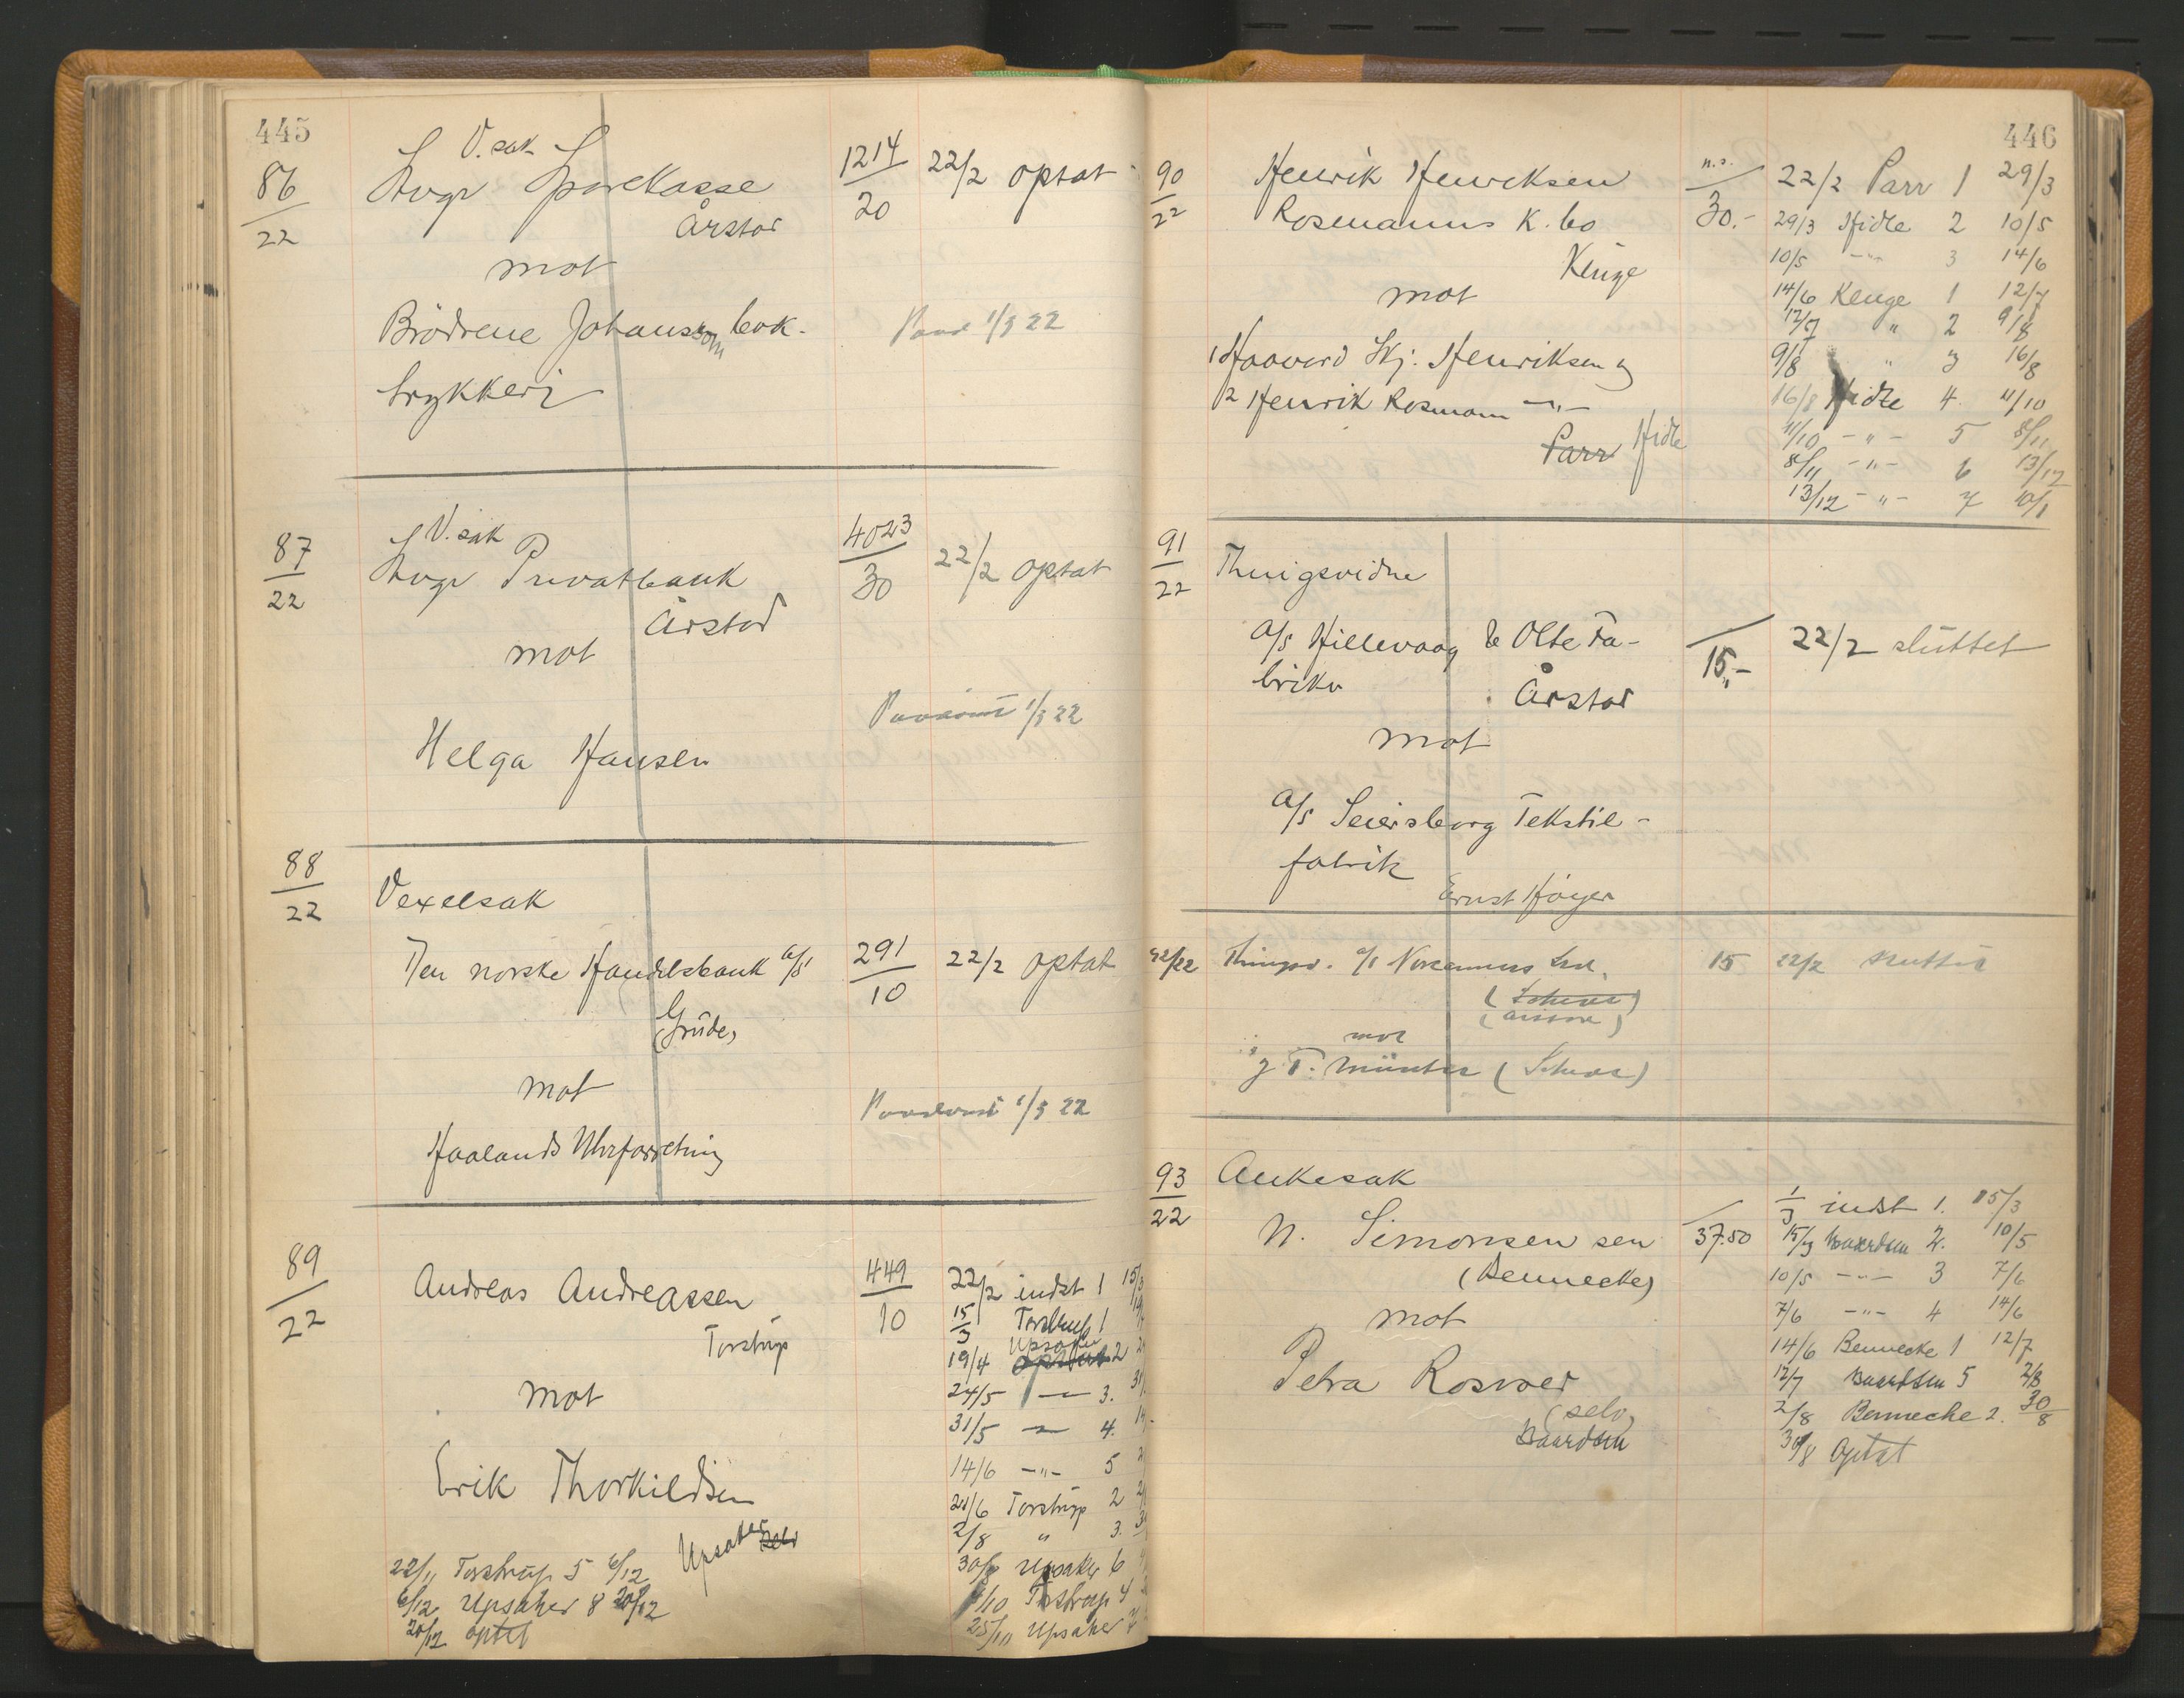 445
86/22
V. sak
Svgr Sparekasse
Årstad
mot
Brödrene Johansson bok-
trykkeri
1214/20
22/2 optat
Paad 1/3 22
87/22
V. sak
Svgr Privatbank
Årstad
mot
Helga Hansen
4023/30
22/2 optat
1/3 22
88/22
Vexelsak
Den norske Handelsbank a/s
(Grude)
mot
Haalands Uhrforretning
291/10
22/2 optat
1/3 22
89/22
Andreas Andreassen
Torstrup
mot
Erik Thorkildsen
Upsaker Selv
449/10
22/2 indst 1 15/3
15/3 Torstrup 1
Upsaker
19/4 optat 2
24/5 — 3.
31/5 — 4.
14/6 -"- 5
21/6 Torstrup 2
2/8 " 3.
30/8 Upsaker 6
4/10 Torstrup 4
25/10 Upsaker 7
22/11 Torstrup 5 6/12
6/12 Upsaker 8 20/12
20/12 optat
446
90/22
Henrik Henriksen
Rosemanns K. bo
Kluge
mot
1 Haavard Skj. Henriksen og
2 Henrik Rosmann -"-
Parr Hidle
n.s./30.-
22/2 Parr 1 29/3
29/3 Hidle 2 10/5
10/5 -"- 3 14/6
14/6 Kluge 1 12/7
12/7 " 2 9/8
9/8 " 3 16/8
16/8 Hidle 4 11/10
11/10 -"- 5 8/11
8/11 -"- 6 13/12
13/12 -"- 7 10/1
91/22
Thingsvidne
A/s Hillevaag & Olte Fa-
briker
Årstad
mot
A/s Seiersborg Tekstil-
fabrik
Ernst Höyer
15,-
22/2 sluttet
92/22 Thingsv. a/s
mot
J. F. Münter
15 22/2 sluttet
93/22
Ankesak
N. Simonsen sen
(Bennecke)
mot
Petra Rosvær
(selv)
Baardsen
37.50
1/3 indst 1. 15/3
15/3 Baardsen 2. 10/5
10/5 -"- 3 7/6
7/6 -"- 4 14/6
14/6 Bennecke 1 12/7
12/7 Baardsen 5 2/8
2/8 Bennecke 2. 30/8
30/8 Optat